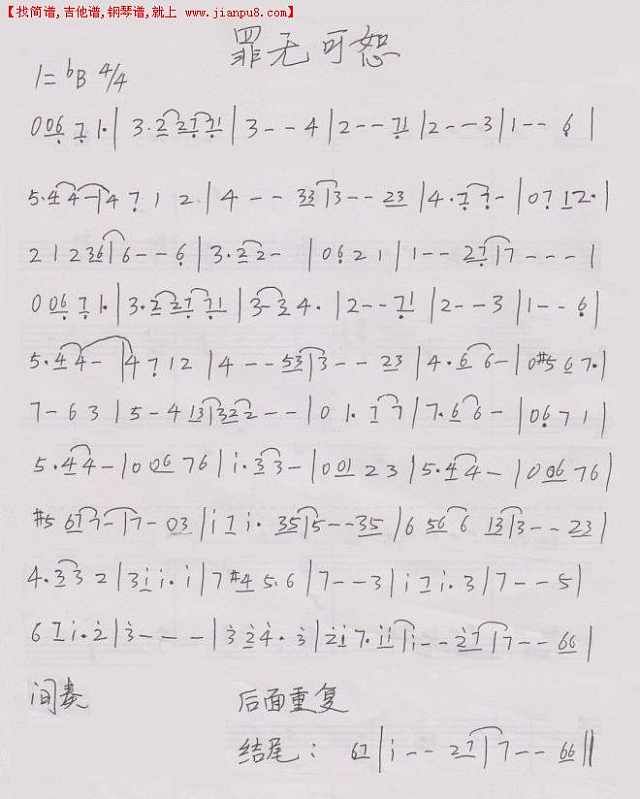 【找简谱,吉他谱,钢琴谱,就上 www.jianpu8.com】
罪无可恕
1=ᵇB 4/4
0 06 7 1·|3·2 27 71|3--4|2--71|2--3|1--6|
5·44-|47 1 2|4--33|3--23|4·77-|07 12·|
2 1 2 36|6--6|3·22-|06 2 1|1--27|7---|
0 06 7 1·|3·2 27 71|3-34·|2--71|2--3|1--6|
5·44-|47 12|4--53|3--23|4·66-|0#5 6 7·|
7-6 3|5-4 13|322--|0 1·77|7·66-|06 7 1|
5·44-|0 06 76|i·33-|0 01 2 3|5·44-|0 06 76|
#5 677-|7-03|i7i·35|5--35|6 56 6 13|3--23|
4·33 2|3ii·i|7#4 5·6|7--3|i7i·3|7--5|
67i·2|3---|3 24·3|2i7·ii|i--27|7--66|
间奏 后面重复
结尾: 67|i--27|7--66‖